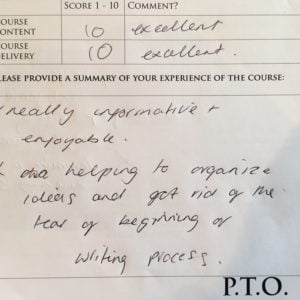 SCORE 1 - 10 COMMENT?
COURSE CONTENT 10 excellent
COURSE DELIVERY 10 excellent.
PLEASE PROVIDE A SUMMARY OF YOUR EXPERIENCE OF THE COURSE:
really informative +
enjoyable.
helping to organize
ideas and got rid of the
fear of beginning of
writing process.
P.T.O.